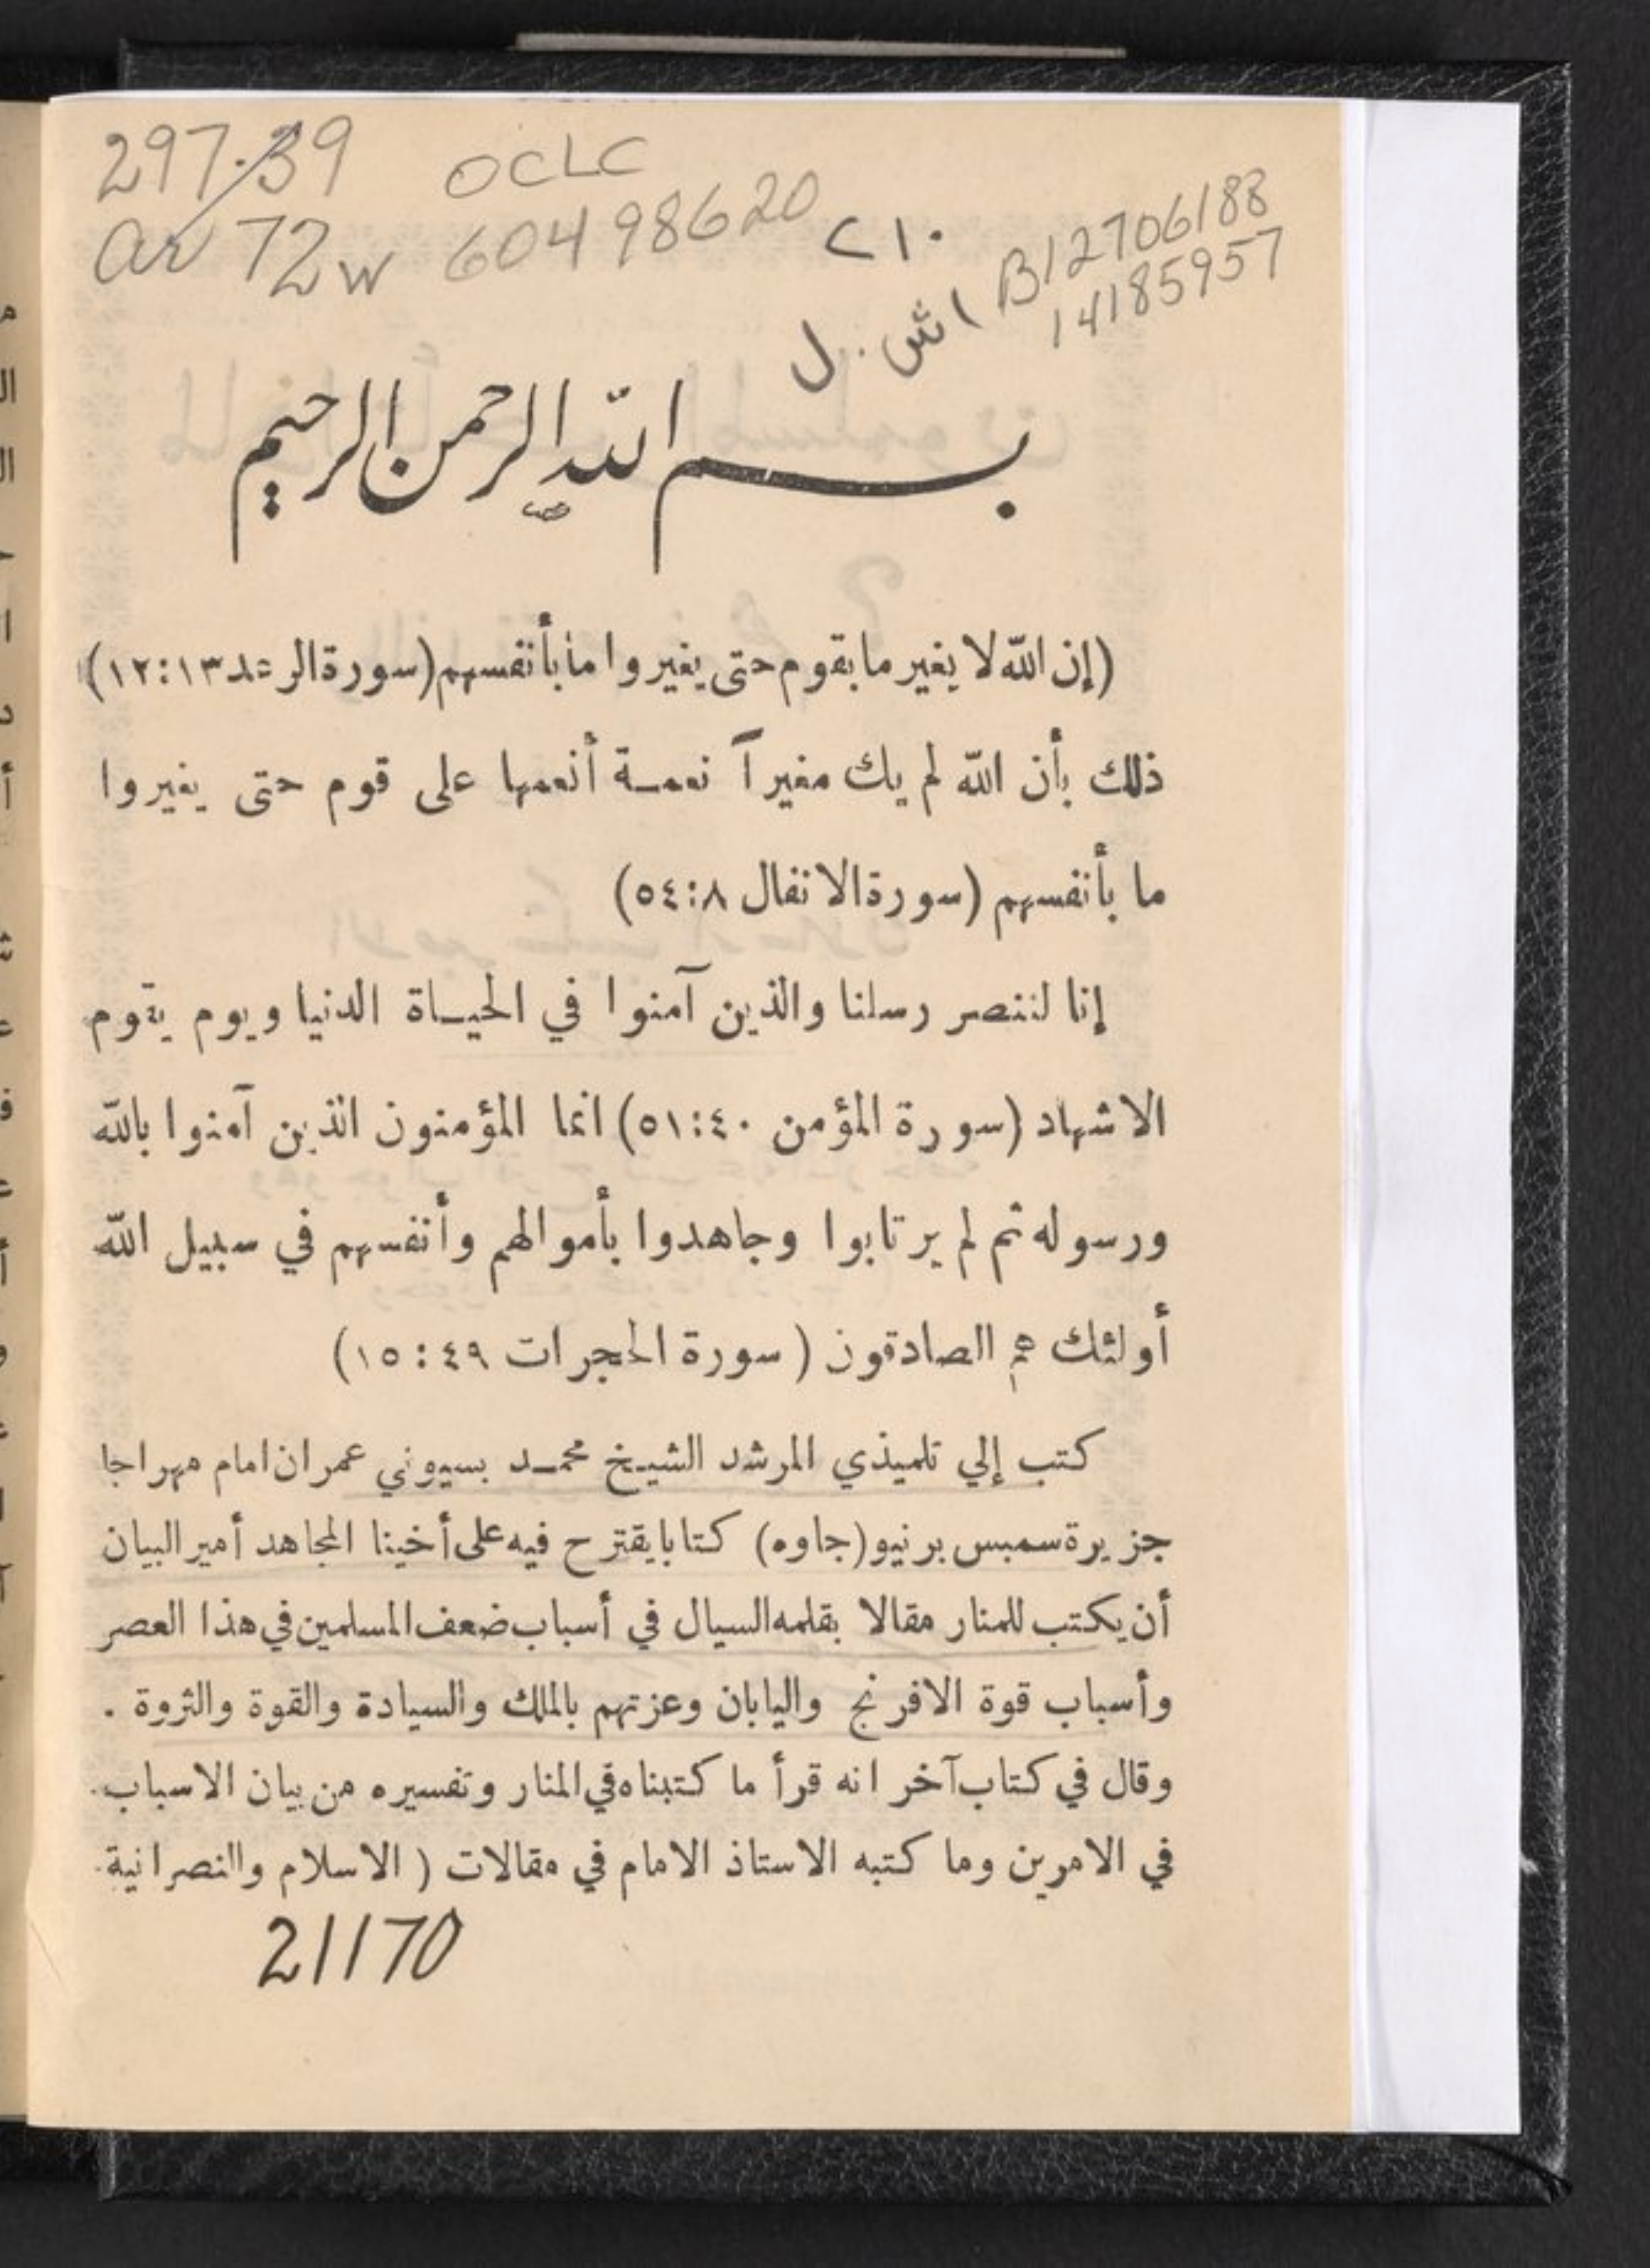 297.39 OCLC
ar 72w 60498620 ٢١٠ B12706188
14185957
اش . ل
بسم الله الرحمن الرحيم
(إن الله لا يغير ما بقوم حتى يغيروا ما بأنفسهم (سورة الرعد ١٣:١٢)
ذلك بأن الله لم يك مغيراً نعمـة أنعمها على قوم حتى يغيروا
ما بأنفسهم (سورة الانفال ٨:٥٤)
إنا لننصر رسلنا والذين آمنوا في الحيـاة الدنيا ويوم يقوم
الاشهاد (سورة المؤمن ٤٠:٥١) انما المؤمنون الذين آمنوا بالله
ورسوله ثم لم يرتابوا وجاهدوا بأموالهم وأنفسهم في سبيل الله
أولئك هم الصادقون (سورة الحجرات ٤٩:١٥)
كتب إلي تلميذي المرشد الشيخ محمـد بسيوني عمران امام مهراجا
جزيرة سمبس برنيو (جاوه) كتابا يقترح فيه على أخينا المجاهد أمير البيان
أن يكتب للمنار مقالا بقلمه السيال في أسباب ضعف المسلمين في هذا العصر
وأسباب قوة الافرنج واليابان وعزتهم بالملك والسيادة والقوة والثروة .
وقال في كتاب آخر انه قرأ ما كتبناه في المنار وتفسيره من بيان الاسباب
في الامرين وما كتبه الاستاذ الامام في مقالات (الاسلام والنصرانية
21170